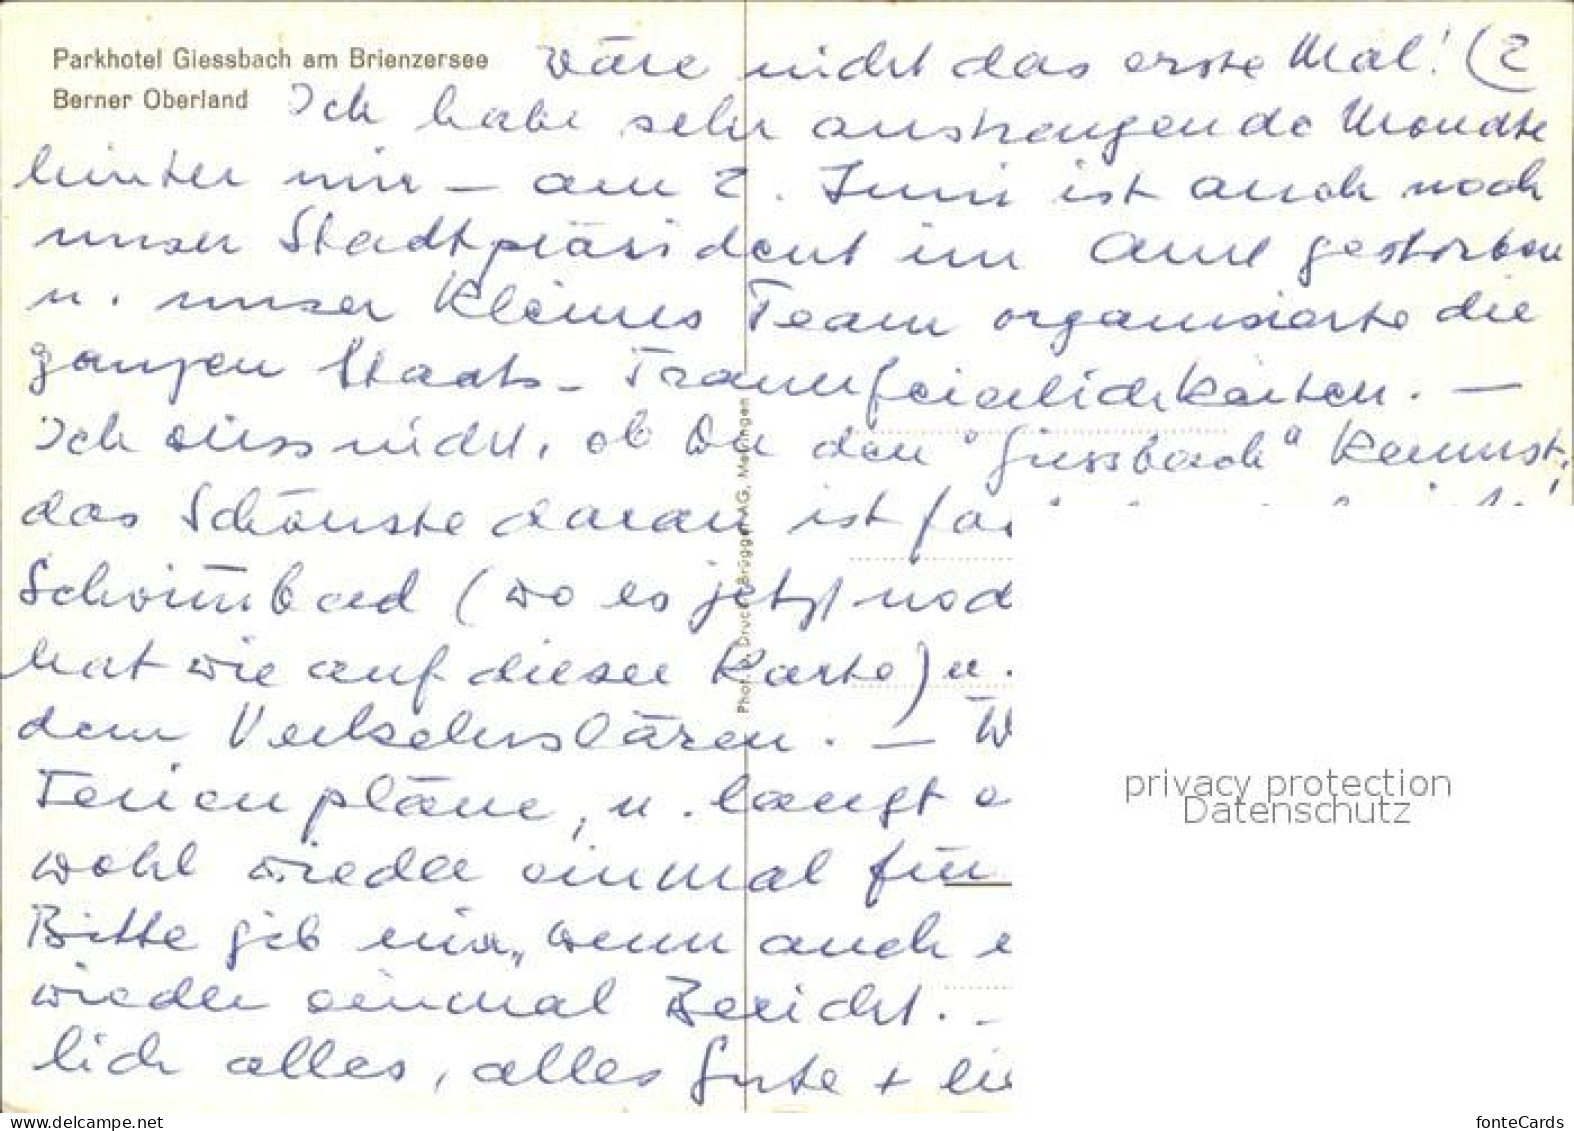 Parkhotel Giessbach am Brienzersee
Berner Oberland
wäre nicht das erste Mal! (2
Ich habe sehr anstrengende Monate
hinter mir – am 2. Juni ist auch noch
unser Stadtpräsident im Amt gestorben
u. unser kleines Team organisierte die
ganzen Staats-Trauerfeierlichkeiten. –
Ich weiss nicht, ob Du den "Giessbach" kennst,
das Schönste daran ist
Schwimmbad (wo es jetzt noch
hat wie auf dieser Karte) u.
dem Verkehrslärm. – W
Ferienpläne, u. langt
wohl wieder einmal für
Bitte gib mir, wenn auch
wieder einmal Bericht. –
lich alles, alles Gute + lie
Phot. u. Druck: Brügger AG, Meiringen
privacy protection
Datenschutz
fonteCards
www.delcampe.net